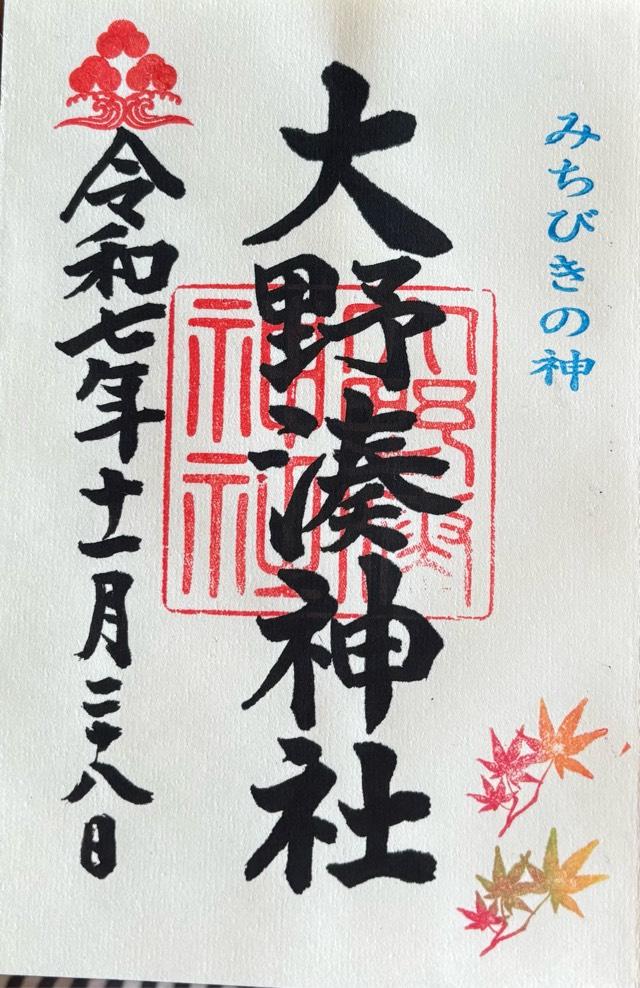 みちびきの神
大野湊神社
大野湊神社
令和七年十一月二十八日